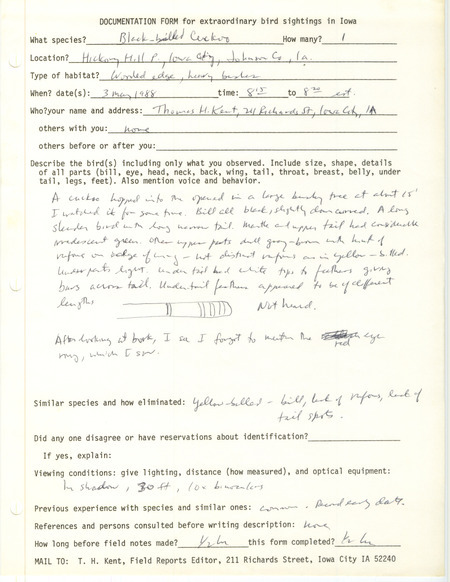 DOCUMENTATION FORM for extraordinary bird sightings in Iowa
What species? Black-billed Cuckoo How many? 1
Location? Hickory Hill P, Iowa City, Johnson Co, Ia.
Type of habitat? Wooded edge, heavy
When? date(s): 3 May 1988 time: 8:15 to 8:20 est.
Who? your name and address: Thomas H. Kent, 211 Richards St, Iowa City, IA
others with you: none
others before or after you:
Describe the bird(s) including only what you observed. Include size, shape, details
of all parts (bill, eye, head, neck, back, wing, tail, throat, breast, belly, under
tail, legs, feet). Also mention voice and behavior.
A cuckoo hopped into the opened in a large tree at about 15'
I watched it for some time. Bill all black, slightly downcurved. A long
slender bird with long narrow tail. upper tail had considerable
iridescent green. Other upper parts dull gray-brown with hint of
rufous on edge of wing - but not distinct rufous as in Yellow-billed.
Underparts light. Under tail had white tips to feathers giving
bars across tail. Undertail feathers appeared to be of different
lengths
Not heard.
After looking at book, I see I forgot to mention the red eye
ring, which I saw.
Similar species and how eliminated: Yellow-billed - bill, lack of rufous, lack of
tail spots.
Did any one disagree or have reservations about identification?
If yes, explain:
Viewing conditions: give lighting, distance (how measured), and optical equipment:
In shadow, 30 ft, 10x binoculars
Previous experience with species and similar ones: common. early date.
References and persons consulted before writing description: none
How long before field notes made? ½ hr this form completed? ½ hr
MAIL TO: T. H. Kent, Field Reports Editor, 211 Richards Street, Iowa City IA 52240